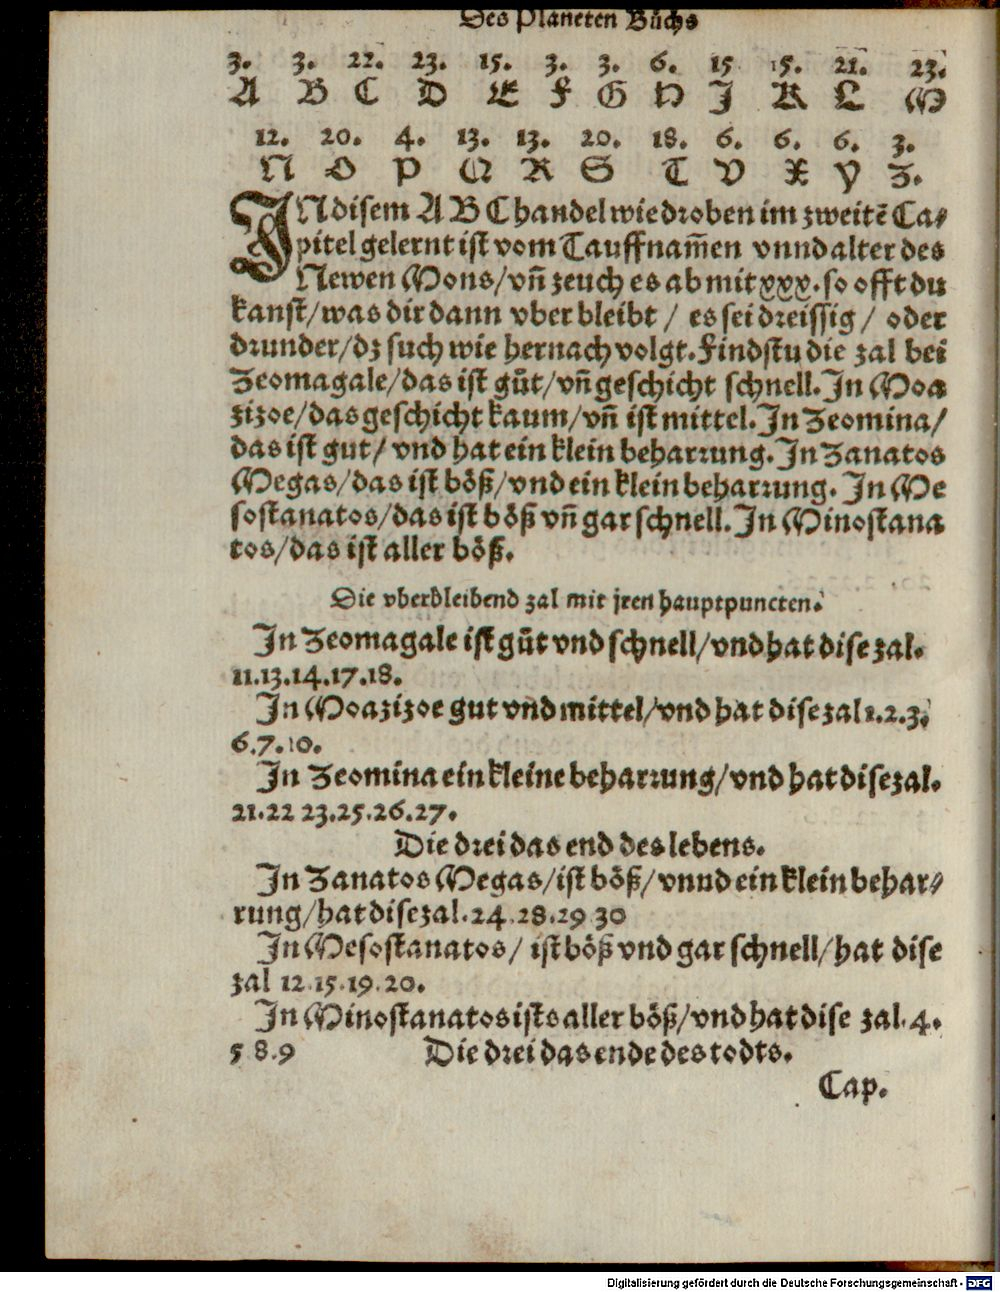 Des Planeten Bůchs
3. 3. 22. 23. 15. 3. 3. 6. 15 15. 21. 23.
A B C D E F G H J K L M
12. 20. 4. 13. 13. 20. 18. 6. 6. 6. 3.
N O P Q R S T V X Y Z.
INdisem A B C handel wie droben im zweitẽ Ca⸗
pitel gelernt ist vom Tauffnam̃en vnnd alter des
Newen Mons/vñ zeuch es ab mit xxx. so offt du
kanst/was dir dann vber bleibt / es sei dreissig / oder
drunder/dz such wie hernach volgt. Findstu die zal bei
Zeomagale/das ist gůt/vñ geschicht schnell. In Moa
zizoe/das geschicht kaum/vñ ist mittel. In Zeomina/
das ist gut/ vnd hat ein klein beharrung. In Zanatos
Megas/das ist böß/vnd ein klein beharrung. In Me
sostanatos/das ist böß vñ gar schnell. In Minostana
tos/das ist aller böß.
Die vberbleibend zal mit jren hauptpuncten.
In Zeomagale ist gůt vnd schnell/vnd hat dise zal.
11.13.14.17.18.
In Moazizoe gut vnd mittel/vnd hat dise zal 1.2.3.
6.7.10.
In Zeomina ein kleine beharrung/vnd hat dise zal.
21.22 23.25.26.27.
Die drei das end des lebens.
In Zanatos Megas/ist böß/vnnd ein klein behar⸗
rung/hat dise zal.24.28.29 30
In Mesostanatos/ ist böß vnd gar schnell/hat dise
zal 12.15.19.20.
In Minostanatos ists aller böß/vnd hat dise zal.4.
5 8.9 Die drei das ende des todts.
Cap.
Digitalisierung gefördert durch die Deutsche Forschungsgemeinschaft - DFG